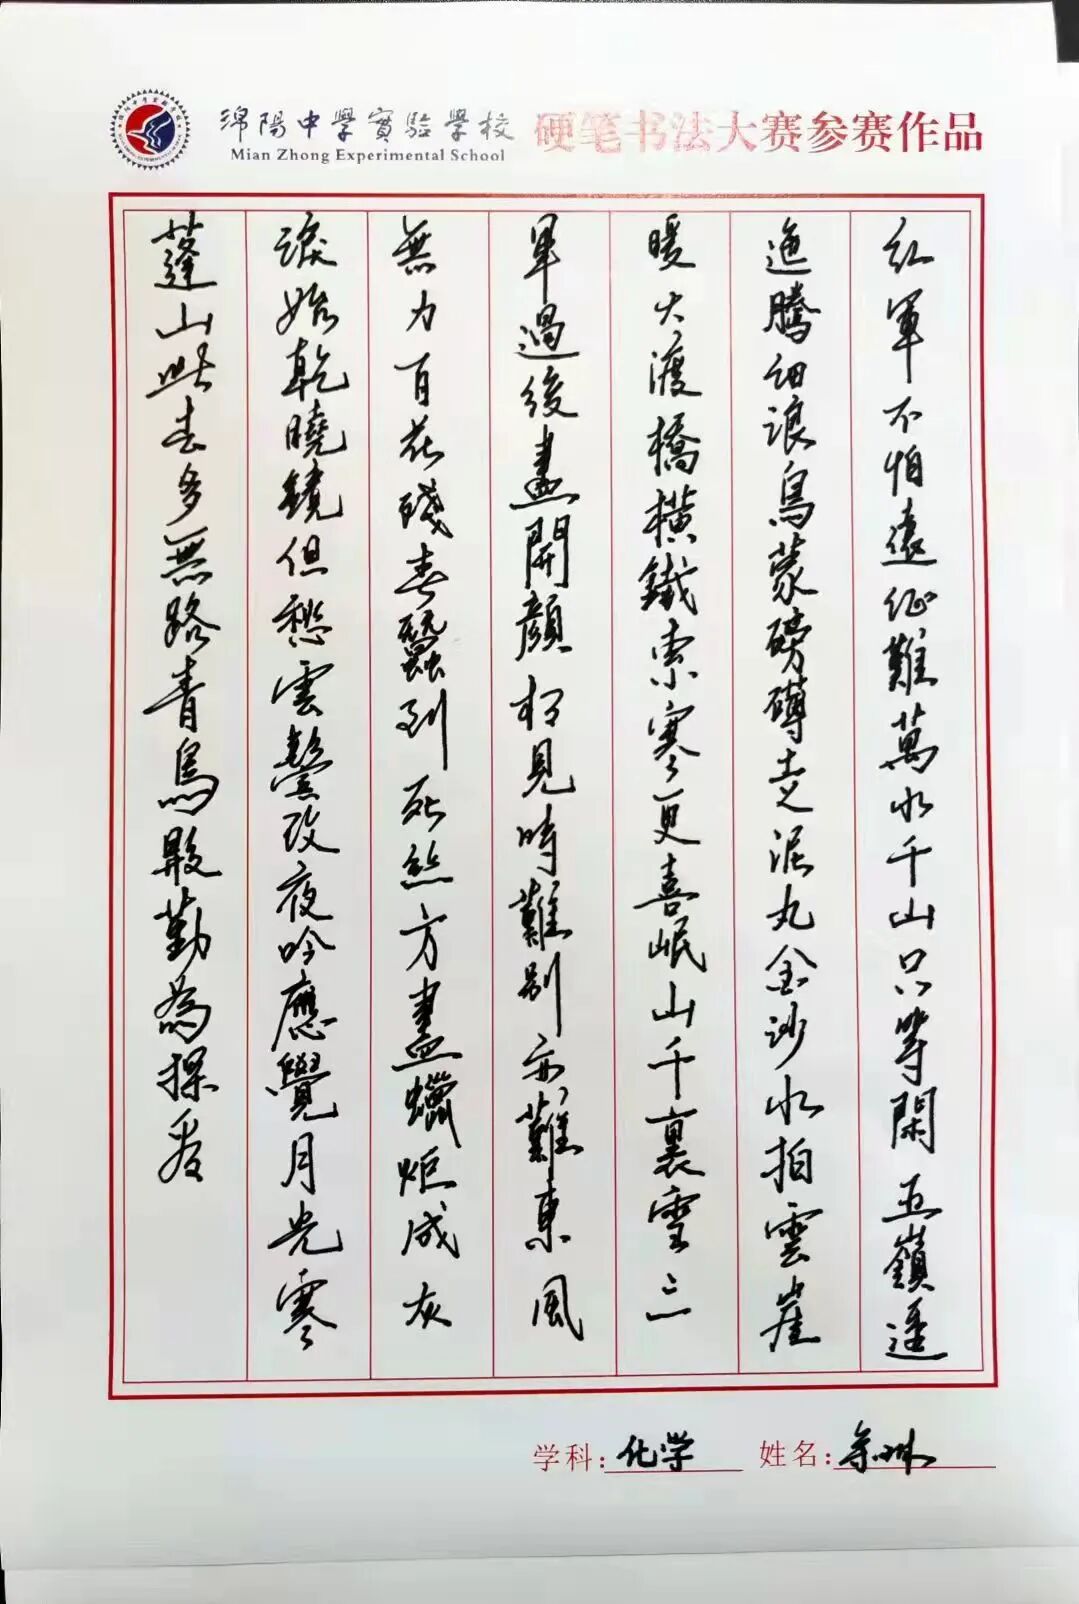 綿陽中學實驗學校
Mian Zhong Experimental School
硬笔书法大赛参赛作品
紅軍不怕遠征難萬水千山只等閑五嶺逶
迤騰細浪烏蒙磅礴走泥丸金沙水拍雲崖
暖大渡橋橫鐵索寒更喜岷山千裏雪三
軍過後盡開顏相見時難別亦難東風
無力百花殘春蠶到死絲方盡蠟炬成灰
淚始乾曉鏡但愁雲鬢改夜吟應覺月光寒
蓬山此去多無路青鳥殷勤為探看
学科:化学 姓名: